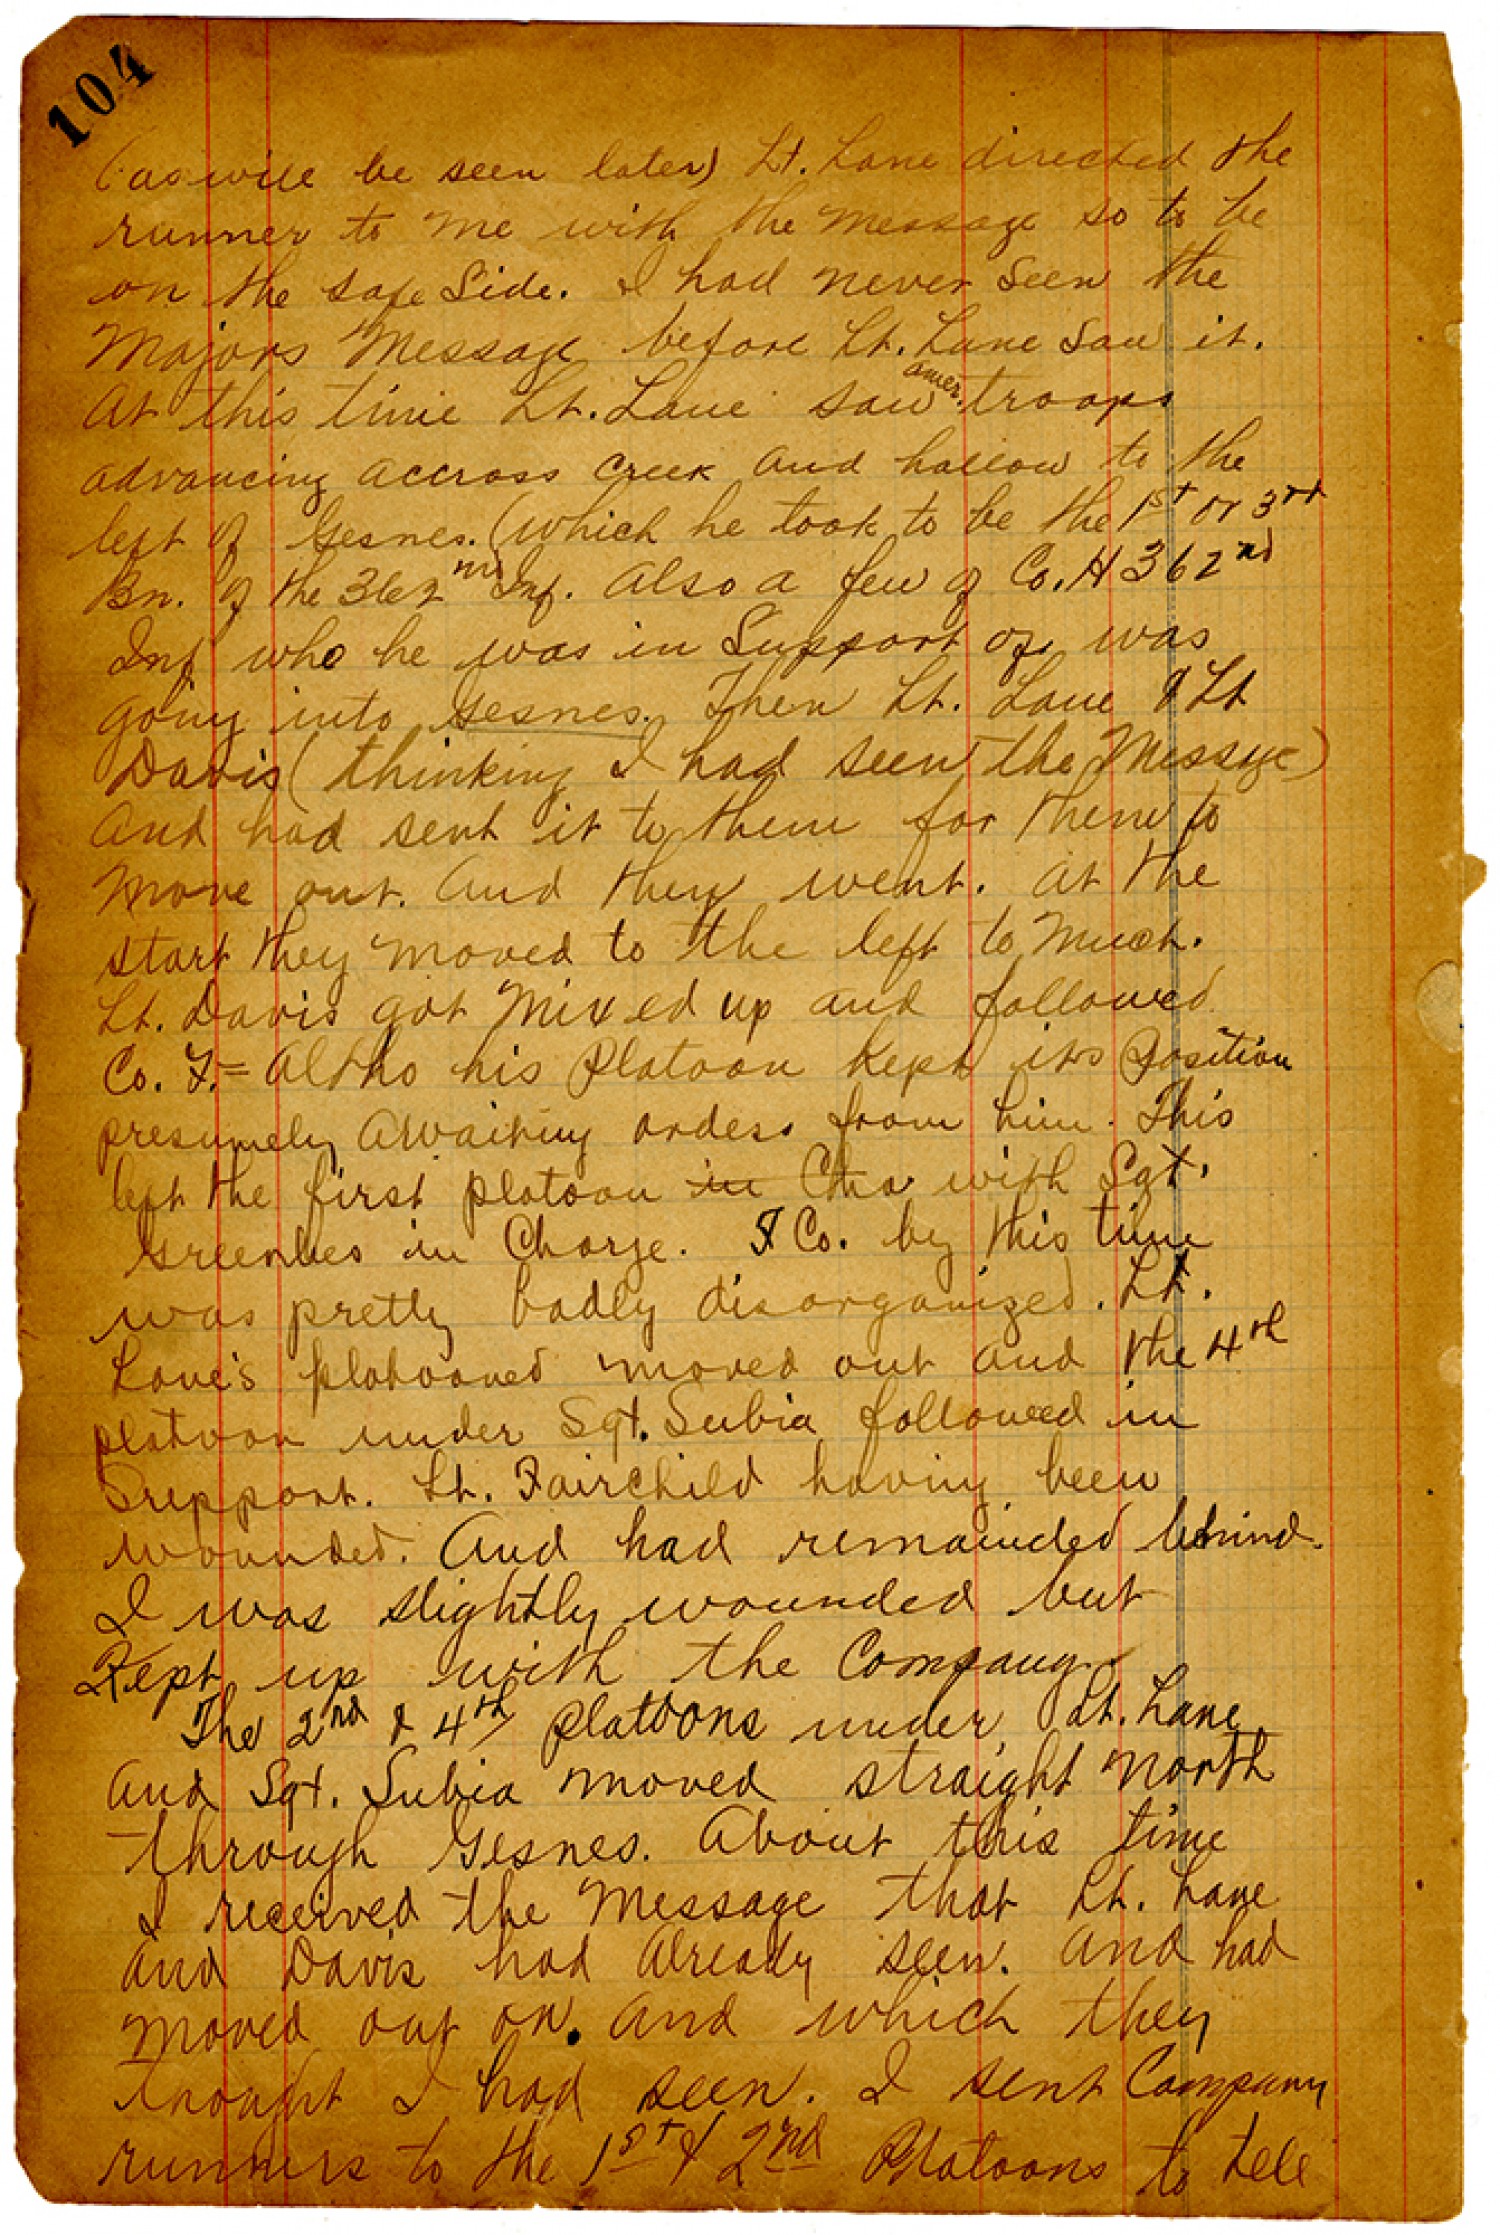 104
(as will be seen later) Lt. Lane directed the
runner to me with the message so to be
on the safe side. I had never seen the
Majors Message before Lt. Lane saw it.
At this time Lt. Lane saw amer. troops
advancing accross creek and hallow to the
left of Gesnes. (which he took to be the 1st or 3rd
Bn. of the 362nd Inf. Also a few of Co. H 362nd
Inf who he was in Support of, was
going into Gesnes. Then Lt. Lane & Lt
Davis (thinking I had seen the Message)
and had sent it to them for them to
move out. And they went. At the
start they moved to the left to much.
Lt. Davis got mixed up and followed
Co. F.= altho his platoon kept its position
presumely awaiting orders from him. This
left the first platoon in Cha with Sgt.
in Charge. F Co. by this time
was pretty badly disorganized. Lt.
Lane's platooned moved out and the 4th
platoon under Sgt. Subia followed in
Support. Lt. Fairchild having been
wounded. And had remainded behind.
I was slightly wounded but
Kept up with the Company.
The 2nd & 4th platoons under Lt. Lane
and Sgt. Subia moved straight north
through Gesnes. About this time
I received the message that Lt. Lane
and Davis had already seen. And had
moved out on. And which they
thought I had seen. I sent Company
runners to the 1st & 2nd Platoons to tell